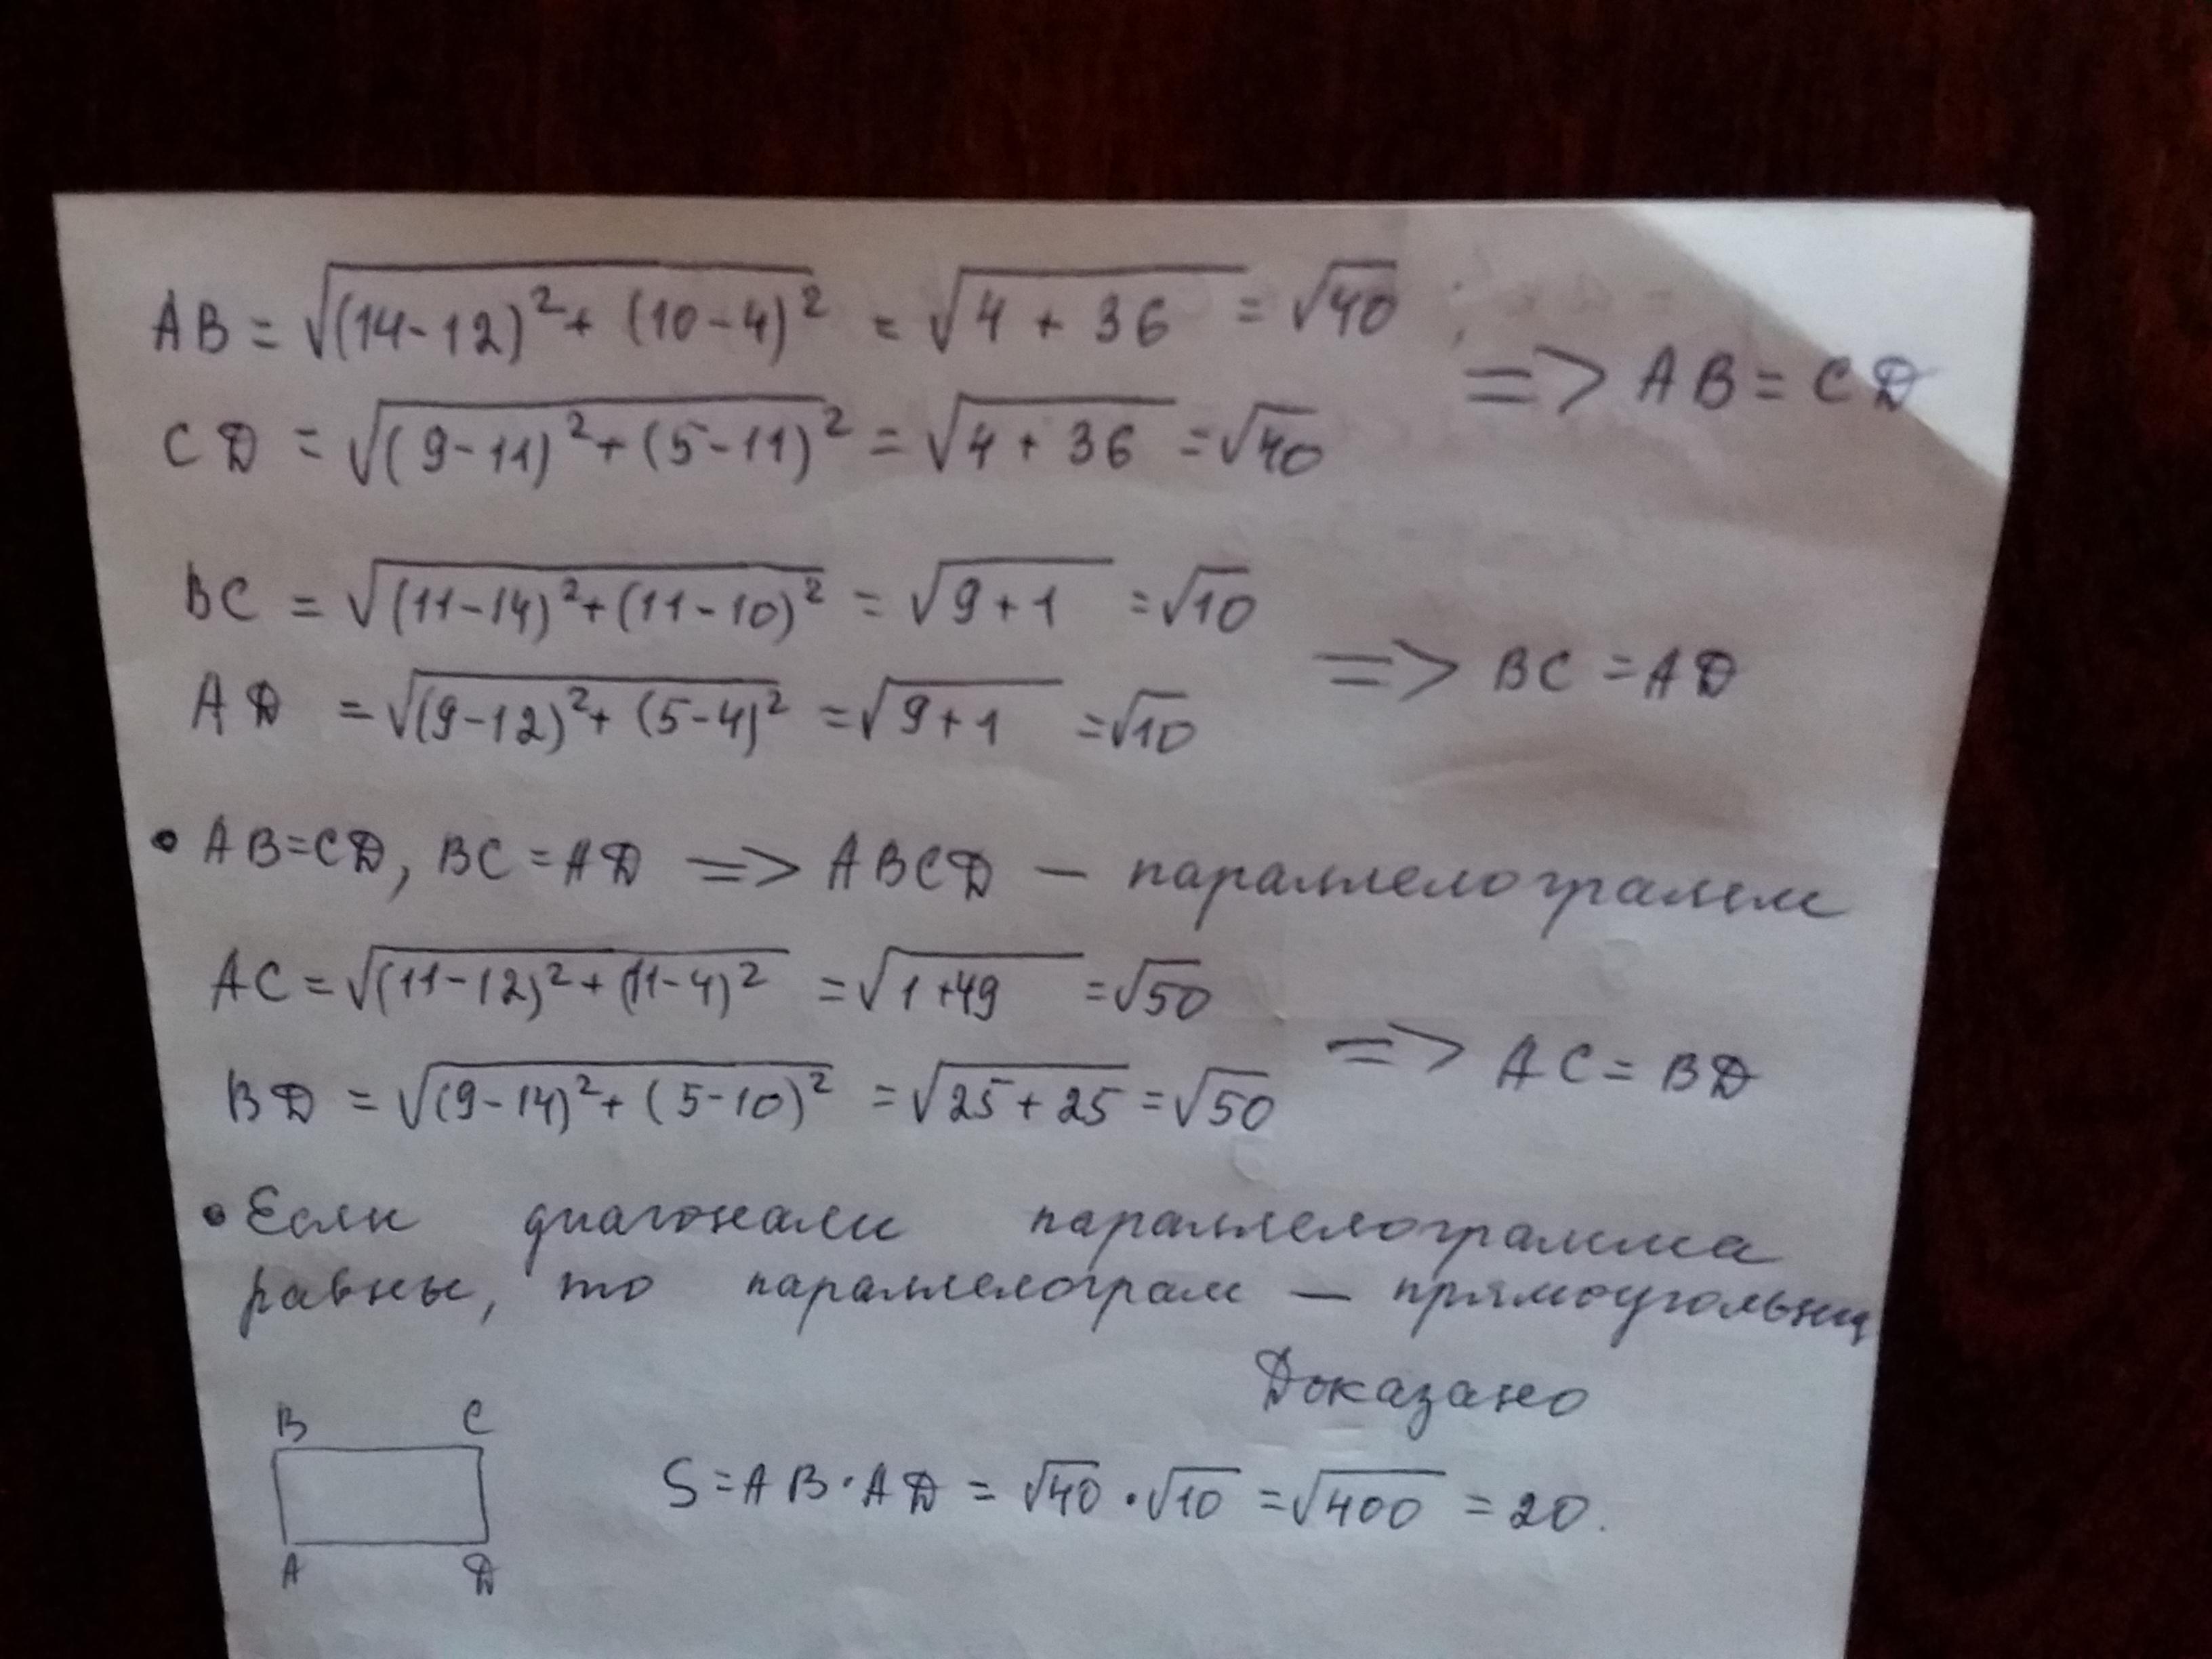 AB = √(14-12)² + (10-4)² = √4 + 36 = √40 ;
=> AB = CD
CD = √(9-11)² + (5-11)² = √4 + 36 = √40
BC = √(11-14)² + (11-10)² = √9+1 = √10
=> BC = AD
AD = √(9-12)² + (5-4)² = √9+1 = √10
• AB=CD, BC=AD => ABCD — параллелограмм
AC = √(11-12)² + (11-4)² = √1+49 = √50
=> AC = BD
BD = √(9-14)² + (5-10)² = √25+25 = √50
• Если диагонали параллелограмма
равны, то параллелограм — прямоугольниц
Доказано
B C
S = AB · AD = √40 · √10 = √400 = 20.
A D